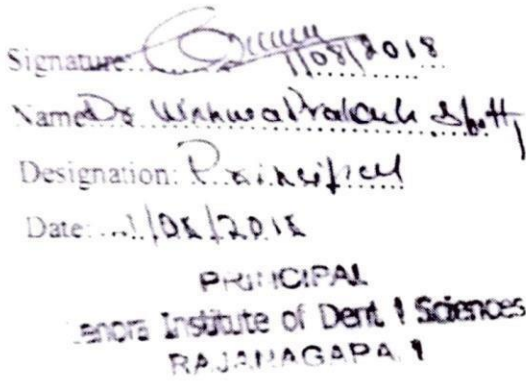 Signature: 1/08/2018
Name Dr Vishwa Prakash Shetty
Designation: Principal
Date: 1/08/2018
PRINCIPAL
enora Institute of Dent l Sciences
RAJANAGAPA